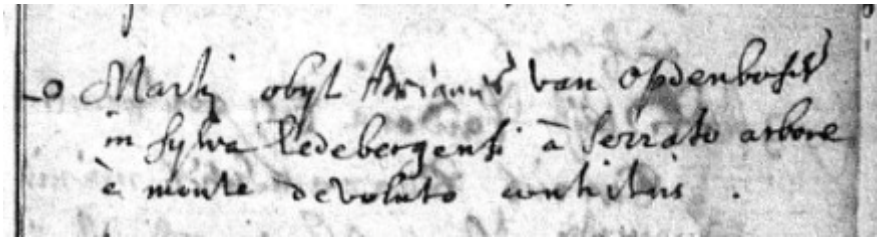 _0 Martij obijt Adrianus van Opdenbosch
in sylva Ledebergensi à serrato arbore
è monte devoluto contritus .